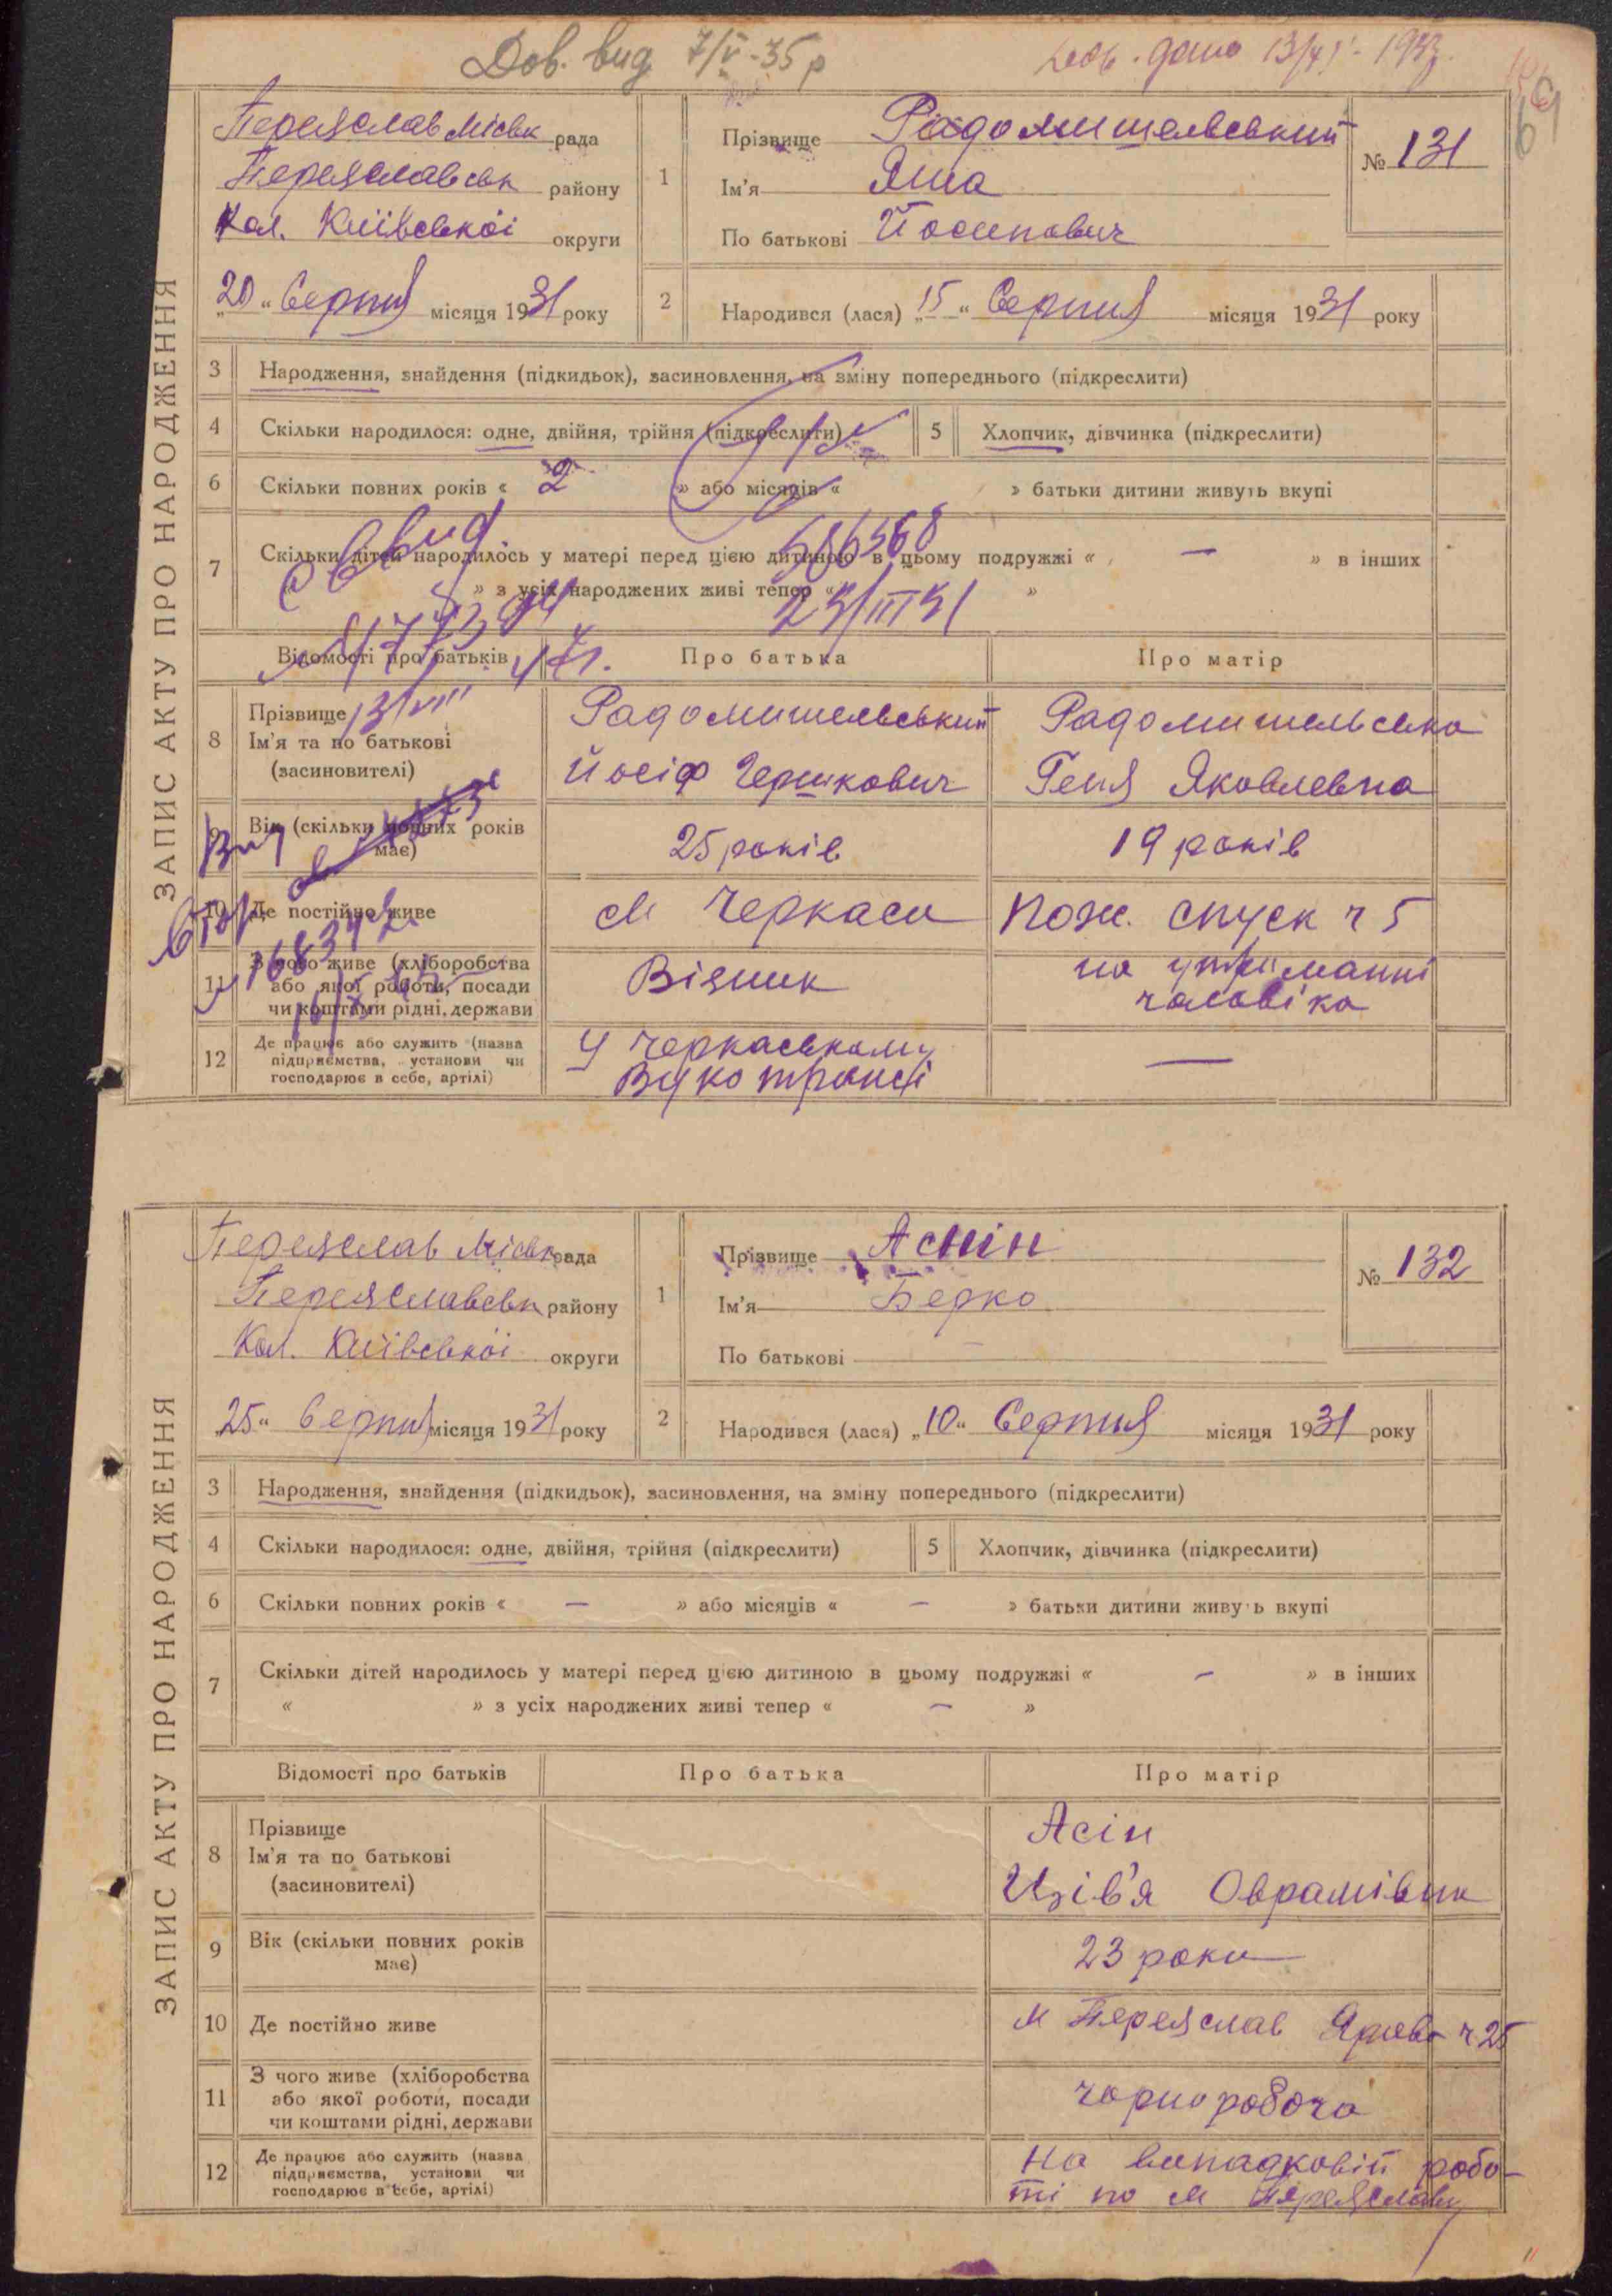 Дов. вид 7/V-35 р
69
ЗАПИС АКТУ ПРО НАРОДЖЕННЯ
Переяслав Міськ рада
Переяславськ району
Кол. Київської округи
„20“ Серпня місяця 1931 року
1
Прізвище Радомишельський
Ім'я Яша
По батькові Йосипович
№ 131
2
Народився (лася) „15“ Серпня місяця 1931 року
3 Народження, знайдення (підкидьок), засиновлення, на зміну попереднього (підкреслити)
4 Скільки народилося: одне, двійня, трійня (підкреслити)
5 Хлопчик, дівчинка (підкреслити)
6 Скільки повних років « 2 » або місяців « » батьки дитини живуть вкупі
7 Скільки дітей народилось у матері перед цією дитиною в цьому подружжі « — » в інших
« » з усіх народжених живі тепер « »
Відомості про батьків Про батька Про матір
8 Прізвище
Ім'я та по батькові
(засиновителі)
Радомишельський
Йосіф Гершкович
Радомишельська
Геня Яковлевна
9 Вік (скільки повних років
має)
25 років
19 років
10 Де постійно живе
м Черкаси
Пож. спуск ч 5
11 З чого живе (хліборобства
або якої роботи, посади
чи коштами рідні, держави
Візник
на утріманні
чоловіка
12 Де працює або служить (назва
підприємства, установи чи
господарює в себе, артілі)
У Черкаському
Вукотрансі
—
ЗАПИС АКТУ ПРО НАРОДЖЕННЯ
Переяслав Міськ рада
Переяславськ району
Кол. Київської округи
„25“ Серпня місяця 1931 року
1
Прізвище Аснін
Ім'я Берко
По батькові
№ 132
2
Народився (лася) „10“ Серпня місяця 1931 року
3 Народження, знайдення (підкидьок), засиновлення, на зміну попереднього (підкреслити)
4 Скільки народилося: одне, двійня, трійня (підкреслити)
5 Хлопчик, дівчинка (підкреслити)
6 Скільки повних років « — » або місяців « — » батьки дитини живуть вкупі
7 Скільки дітей народилось у матері перед цією дитиною в цьому подружжі « — » в інших
« » з усіх народжених живі тепер « — »
Відомості про батьків Про батька Про матір
8 Прізвище
Ім'я та по батькові
(засиновителі)
Асін
Ців'я Оврамівна
9 Вік (скільки повних років
має)
23 роки
10 Де постійно живе
м Переяслав ч 25
11 З чого живе (хліборобства
або якої роботи, посади
чи коштами рідні, держави
чорноробоча
12 Де працює або служить (назва
підприємства, установи чи
господарює в себе, артілі)
На випадковій робо-
ті по м Переяславу